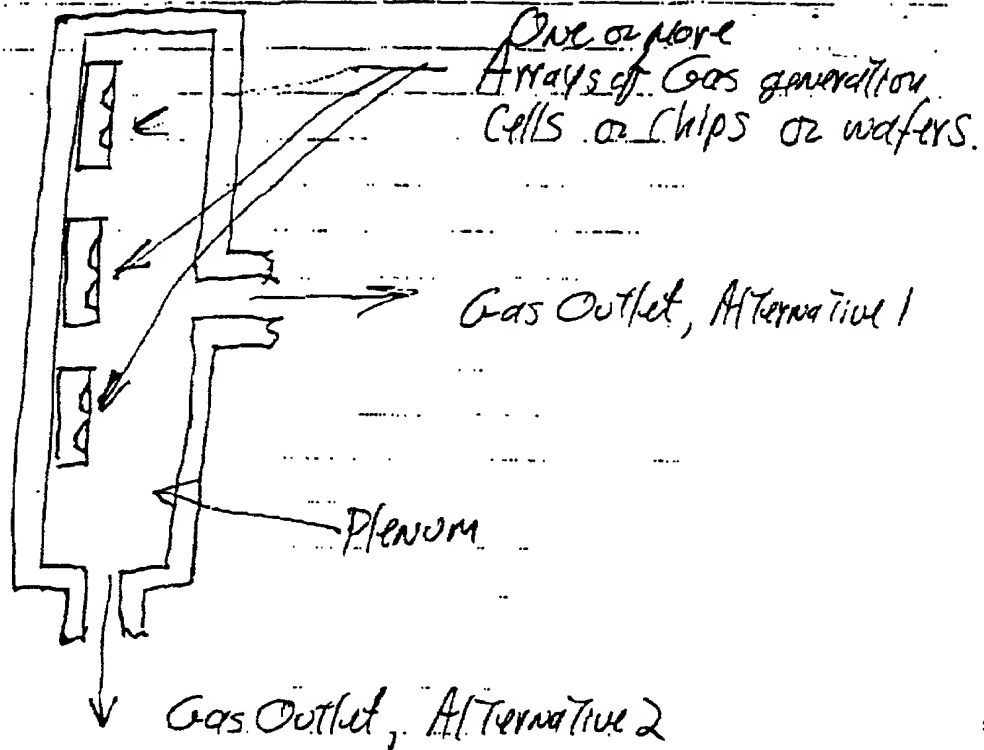 One or More
Arrays of Gas generation
Cells or Chips or wafers.
Gas Outlet, Alternative 1
Plenum
Gas Outlet, Alternative 2